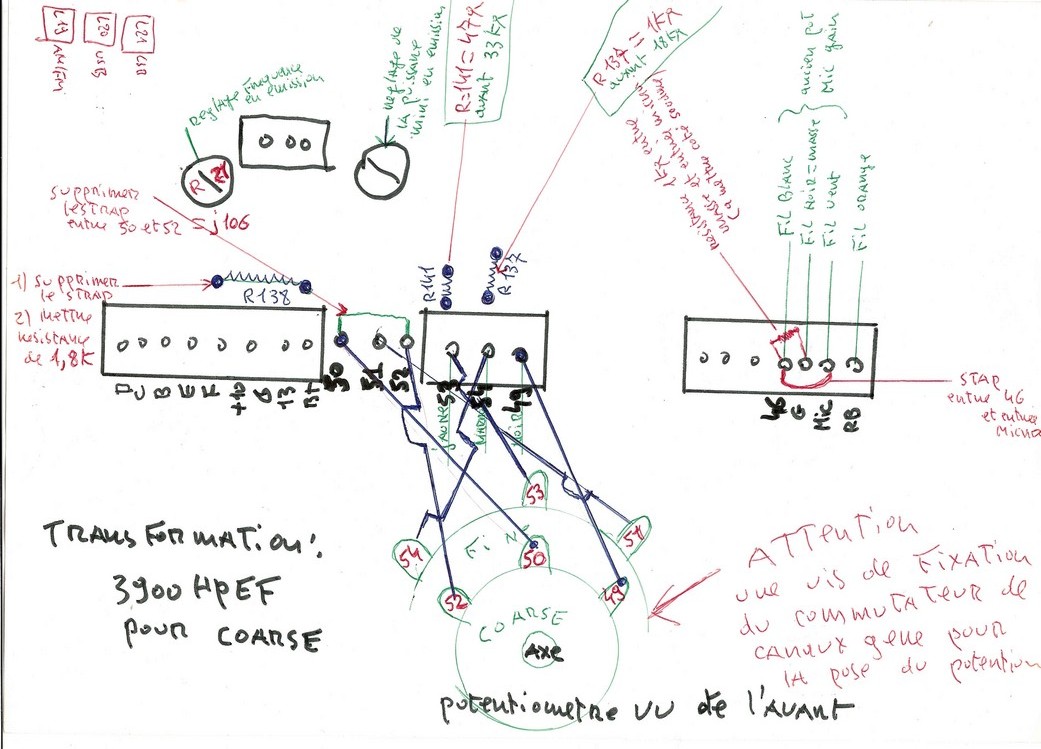 L19
L20
L21
AM/FM
USB
LSB
Reglage Frequence
en emission
R
21
Reglage de
la puissance
mini en emission
R=141=47R
avant 33KR
R 137 = 1KR
avant 18KR
resistance 1KR entre
masse et entrée micro
(a mettre coté soudure)
ancien pot
Mic gain
Fil Blanc
Fil Noir=masse
Fil vert
Fil orange
supprimer
le STRAP
entre 50 et 52 = j106
1) supprimer
le STRAP
2) mettre
resistance
de 1,8K
R138
R141
R137
D
C
B
E
F
+10
13
50
51
52
53
54
49
JAUNE
NOIR
46
G
Mic
RB
STAP
entre 46
et entrée
Micro
53
54
51
50
52
49
FiN
COARSE
AXE
TRANSFORMATION:
3900 HPEF
POUR COARSE
ATTENTION
une vis de FIXATION
du COMMUTATEUR de
canaux gene pour
LA pose du potention
potentiometre vu de l'AVANT